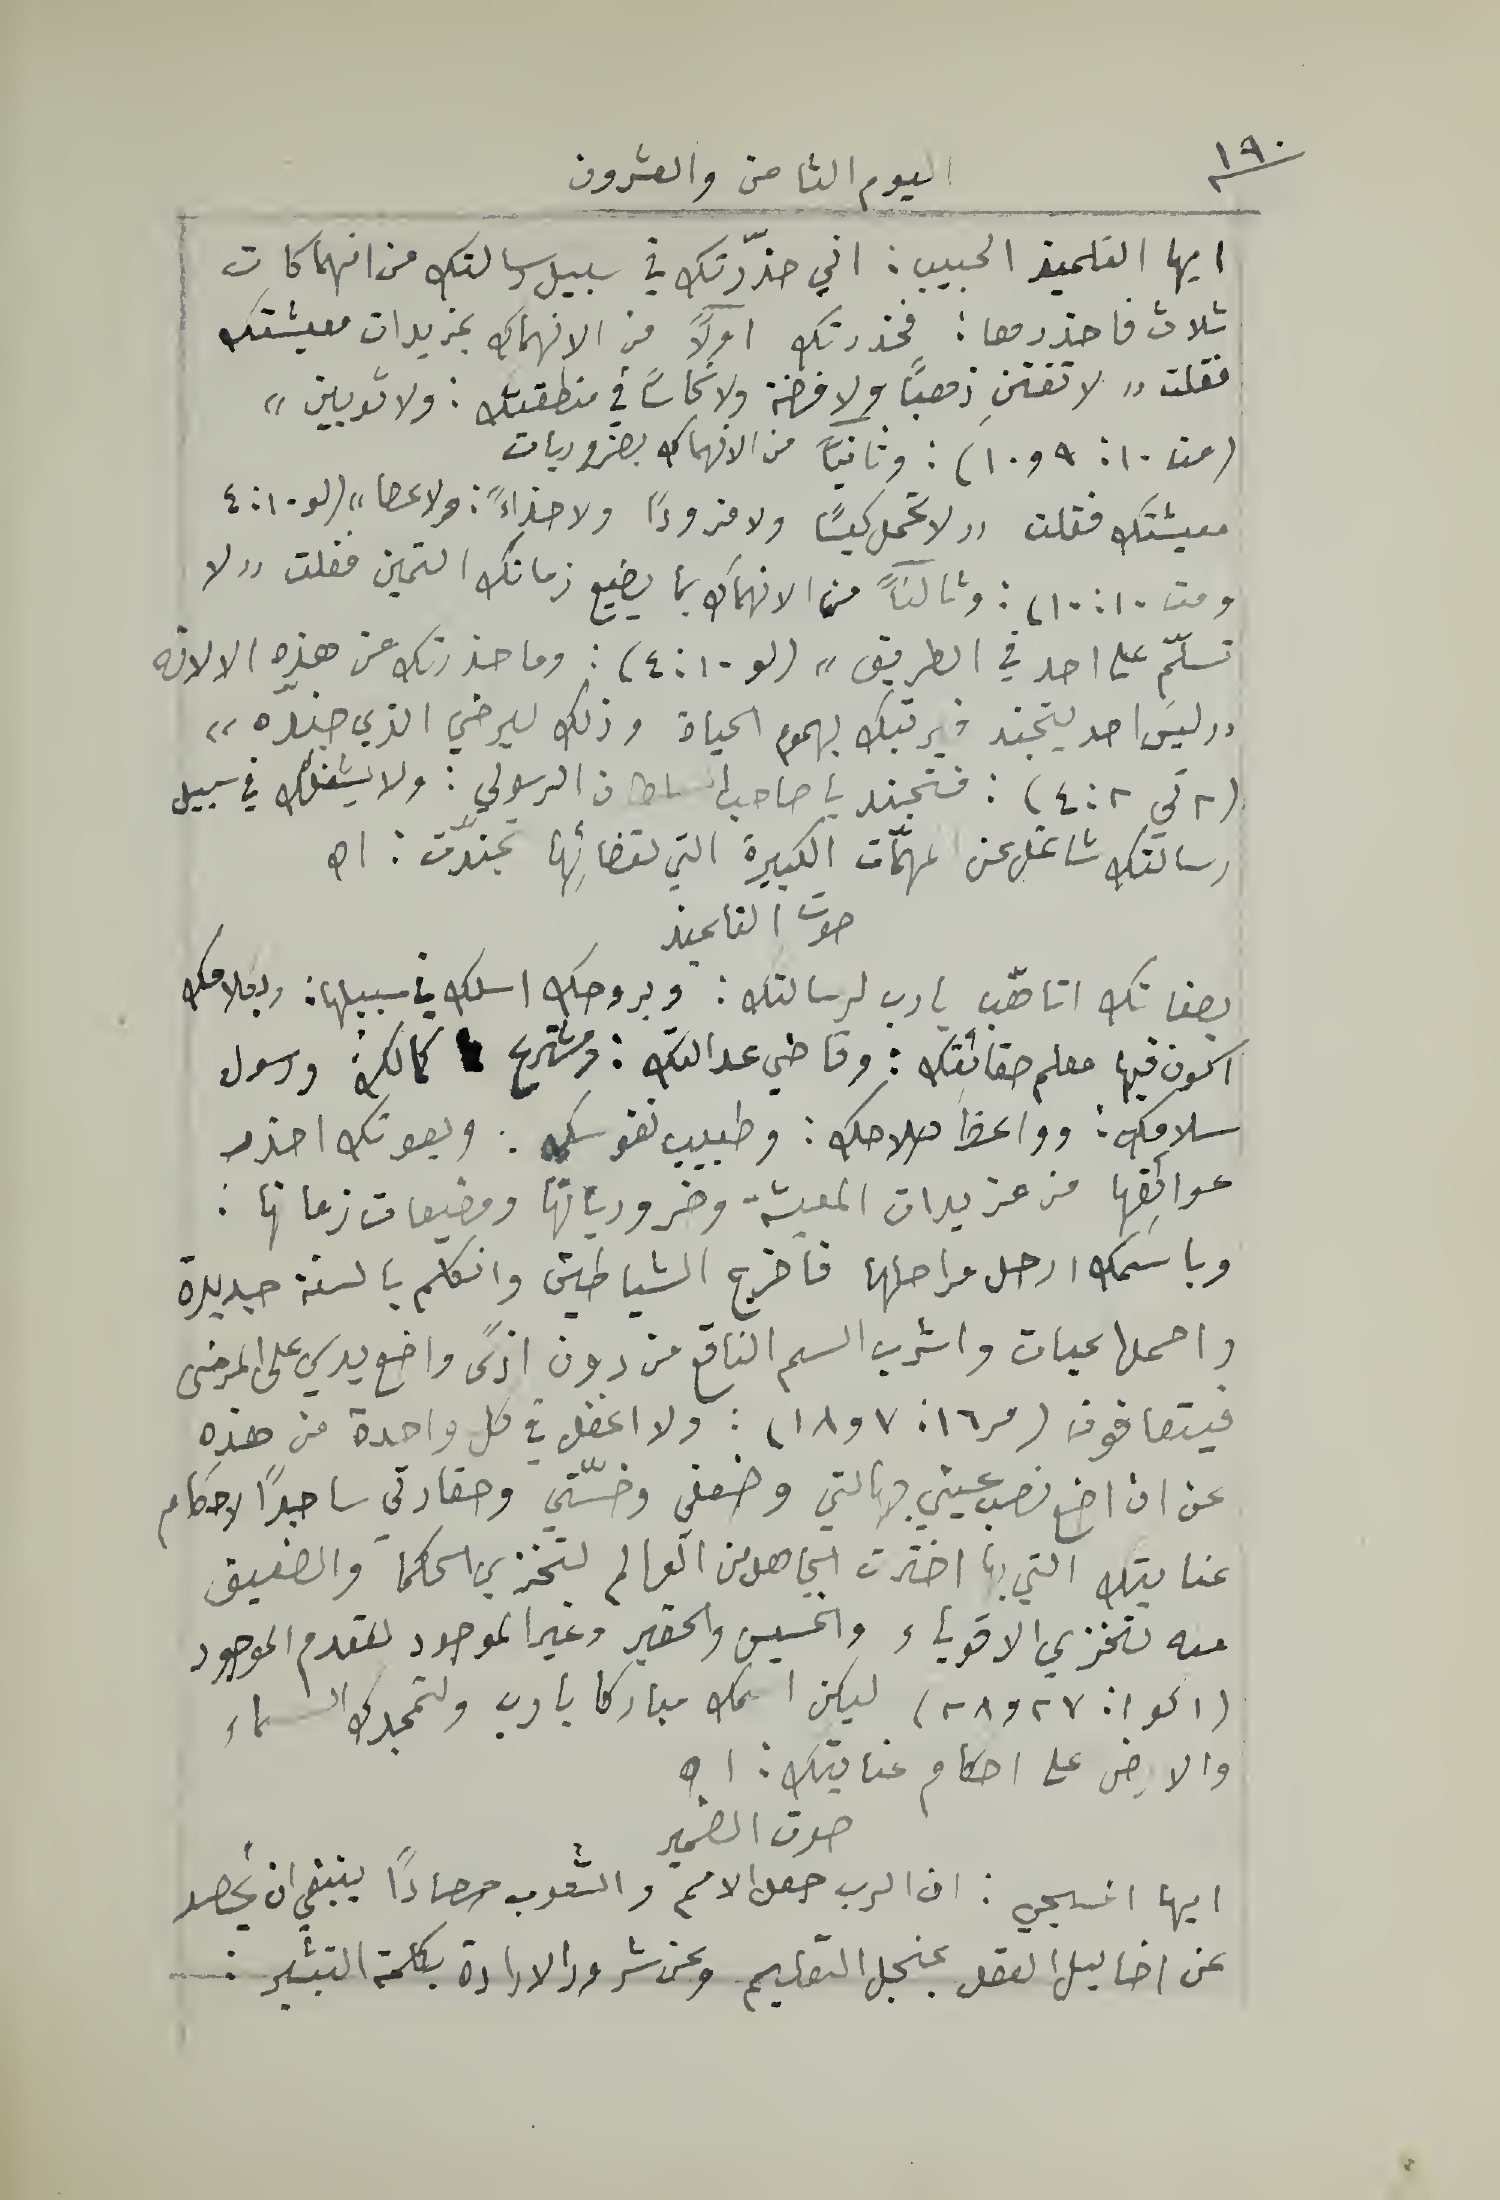 ١٩٠
اليوم الثامن والعشرون
ايها التلميذ الحبيب : اني حذّرتك في سبيل رسالتك من انهماكات
ثلاث فاحذرها : فحذرتك اولاً من الانهماك بمزيدات معيشتك
فقلت » لا تقتنِ ذهبًا ولا فضة ولا نحاسًا في منطقتك : ولا ثوبين »
(مت ١٠: ٩ و١٠) : وثانيًا من الانهماك بضروريات
معيشتك فقلت » لا تحمل كيسًا ولا مزودًا ولا حذاءً : ولا عصا » (لو ١٠: ٤
ومت ١٠: ١٠) : وثالثًا من الانهماك بما يضيع زمانك الثمين فقلت » لا
تسلّم على احد في الطريق » (لو ١٠: ٤) : وما حذرتك عن هذه الا لانه
» ليس احد يتجند فيرتبك بهموم الحياة وذلك ليرضي الذي جنّده »
(٢ تي ٢: ٤) : فتجند يا صاحب السلطان الرسولي : ولا يشغلك في سبيل
رسالتك شاغل عن المهمّات الكبيرة التي لقضائها تجندّت : اه
صوت التلميذ
بصفاتك اتاهّب يا رب لرسالتك : وبروحك اسلك في سبيلها : وبكلامك
اكون فيها معلم حقائقك : وقاضي عدالتك : ومشترع كمالك ورسول
سلامك : وواعظ صلاحك : وطبيب نفوسك : وبصوتك احذر
عوائقها من مزيدات المعيشة وضرورياتها ومضيعات زمانها :
وباسمك ارحل مراحلها فأخرج الشياطين واتكلم بالسنة جديدة
واحمل حيات واشرب السم الناقع من دون اذًى واضع يدي على المرضى
فيتعافون (مر ١٦: ٧ و١٨) : ولا اغفل في كل واحدة من هذه
عن ان اضع نصب عينيّ جهالتي وضعفي وخسّتي وحقارتي ساجدًا لاحكام
عنايتك التي بها اخترت الجاهل من العالم لتخزي الحكما والضعيف
منه لتخزي الاقوياء والخسيس والحقير وغير الموجود لتعدم الموجود
(١ كو ١: ٢٧ و٢٨) ليكن اسمك مباركا يا رب ولتمجدك السماء
والارض على احكام عنايتك : اه
صوت الضمير
ايها المسيحي : ان الرب جعل الامم والشعوب حصادًا ينبغي ان يُحصد
عن اضاليل العقل بمنجل التعليم وعن شرور الارادة بكلمة التبشير :